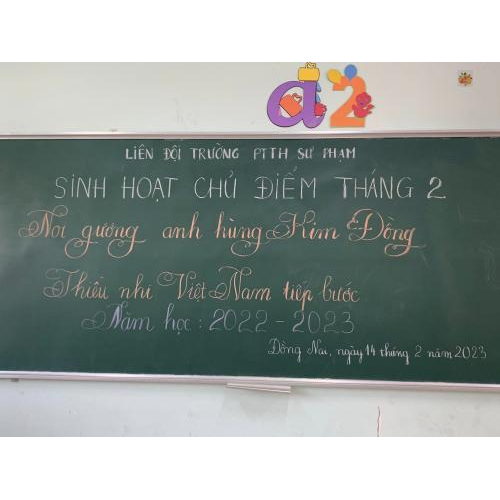 a2
LIÊN ĐỘI TRƯỜNG PTTH SƯ PHẠM
SINH HOẠT CHỦ ĐIỂM THÁNG 2
Noi gương anh hùng Kim Đồng
Thiếu nhi Việt Nam tiếp bước
Năm học: 2022 - 2023
Đồng Nai, ngày 14 tháng 2 năm 2023